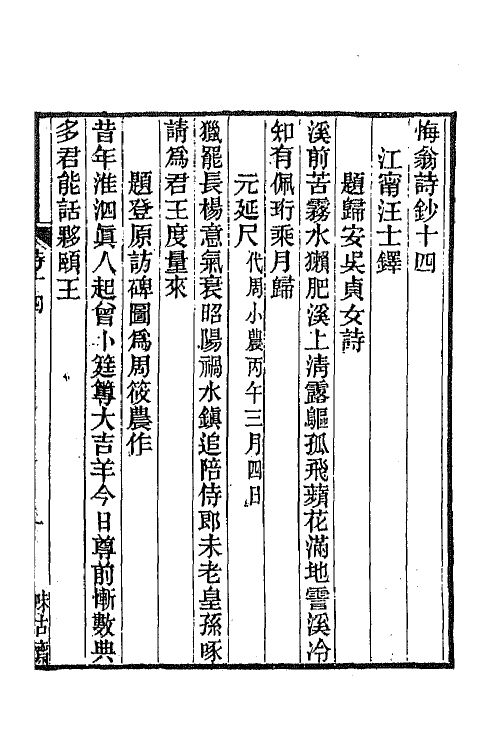 悔翁詩鈔十四
江甯汪士鐸
題歸安吳貞女詩
溪前苦霧水獺肥溪上淸露鷗孤飛蘋花滿地霅溪冷
知有佩珩乘月歸
元延尺代周小農丙午三月四日
獵罷長楊意氣衰昭陽禍水鎮追陪侍郎未老皇孫啄
請爲君王度量來
題登原訪碑圖爲周筱農作
昔年淮泗眞人起曾卟筳篿大吉羊今日尊前慚數典
多君能話夥頤王
詩十四
一
味古齋